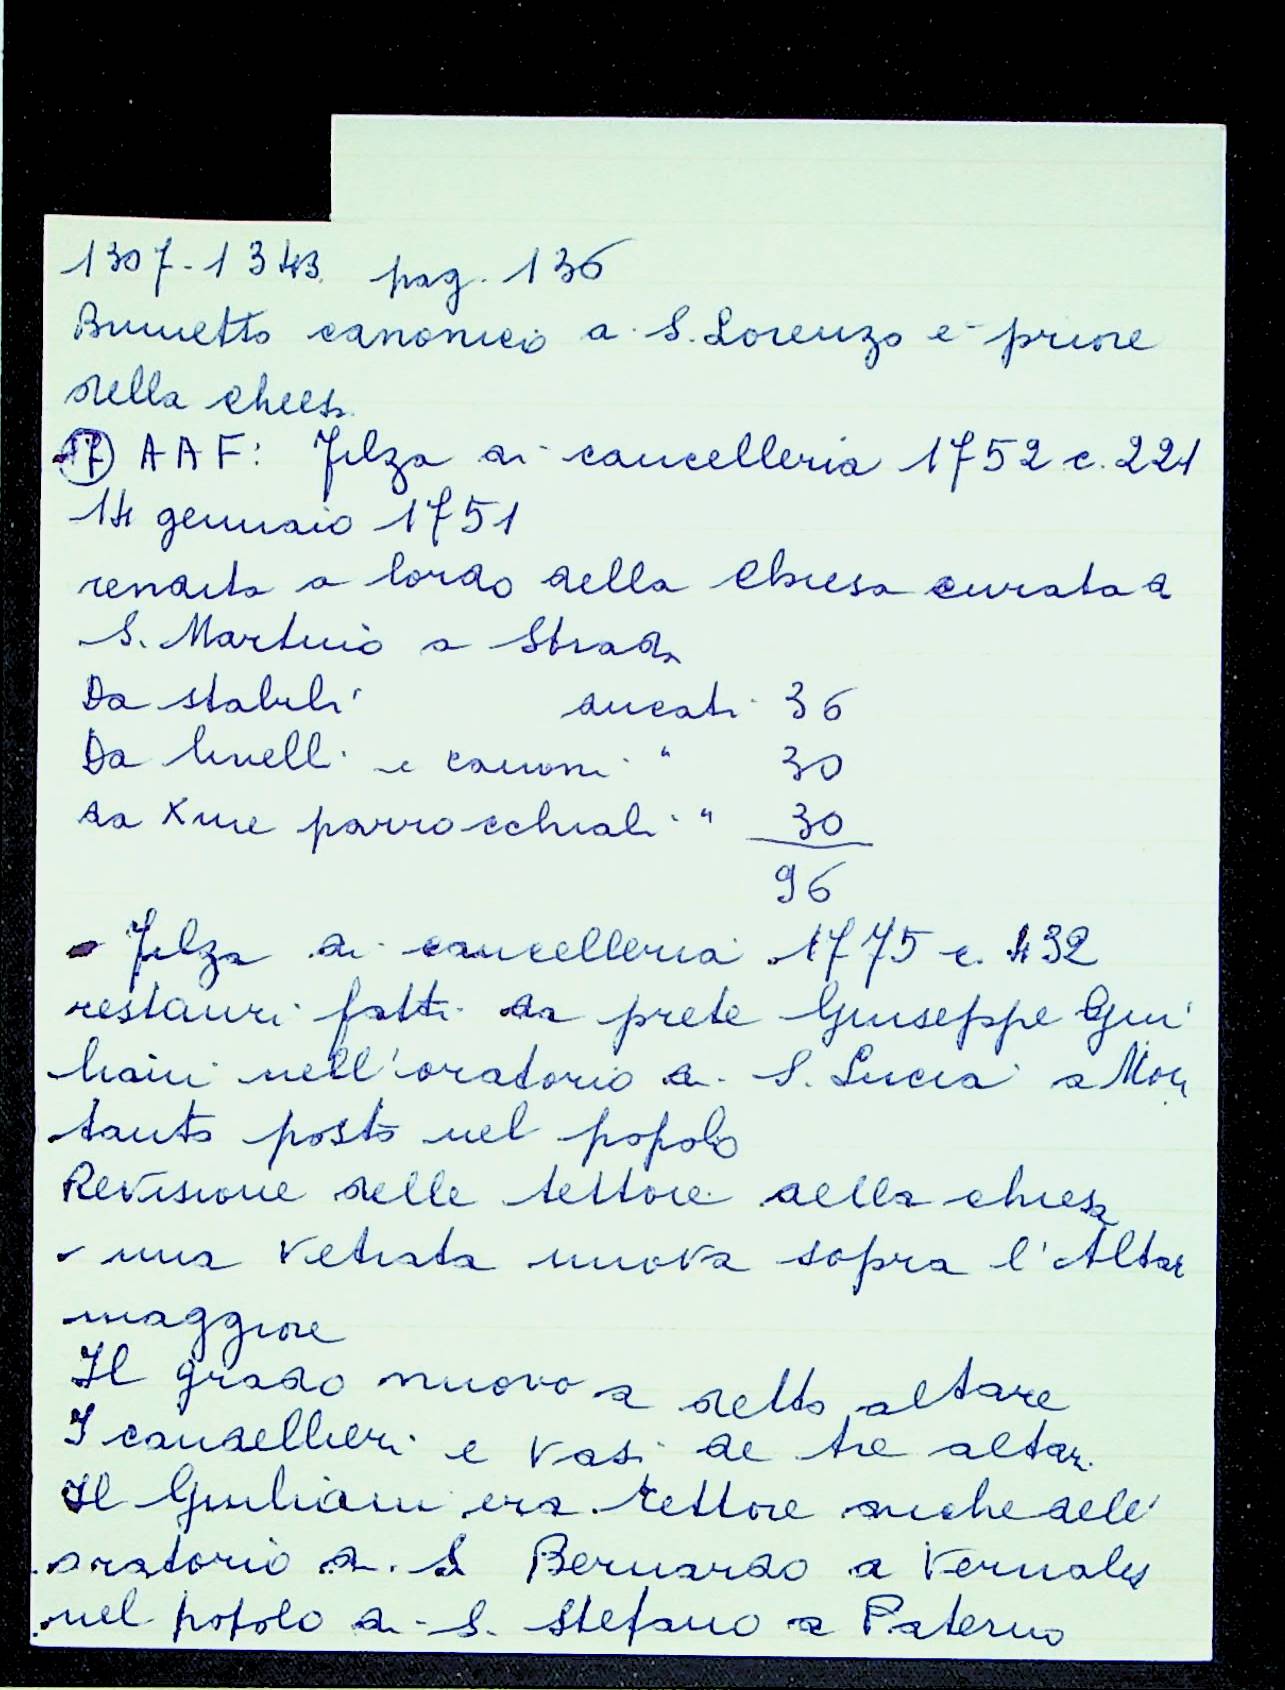 1307-1343 pag. 136
Brunetto canonico a S. Lorenzo e priore
della chiesa
17 AAF: Filza di cancelleria 1752 c. 221
14 gennaio 1751
rendita a lordo della Chiesa curata d
S. Martino a Strada
Da stabili ducati 36
Da livelli e canoni " 30
da Xme parrocchiali " 30
96
- Filza di cancelleria 1775 c. 432
restauri fatti da prete Giuseppe Giu
liani nell'oratorio di S. Lucia a Mon
tauto posto nel popolo
Revisione delle tettoie della chiesa
- una vetrata nuova sopra l'Altar
maggiore
Il grado nuovo a detto altare
I candellieri e vasi de tre altari
Il Giuliani era rettore anche dell'
oratorio di S Bernardo a
nel popolo di S. Stefano a Paterno